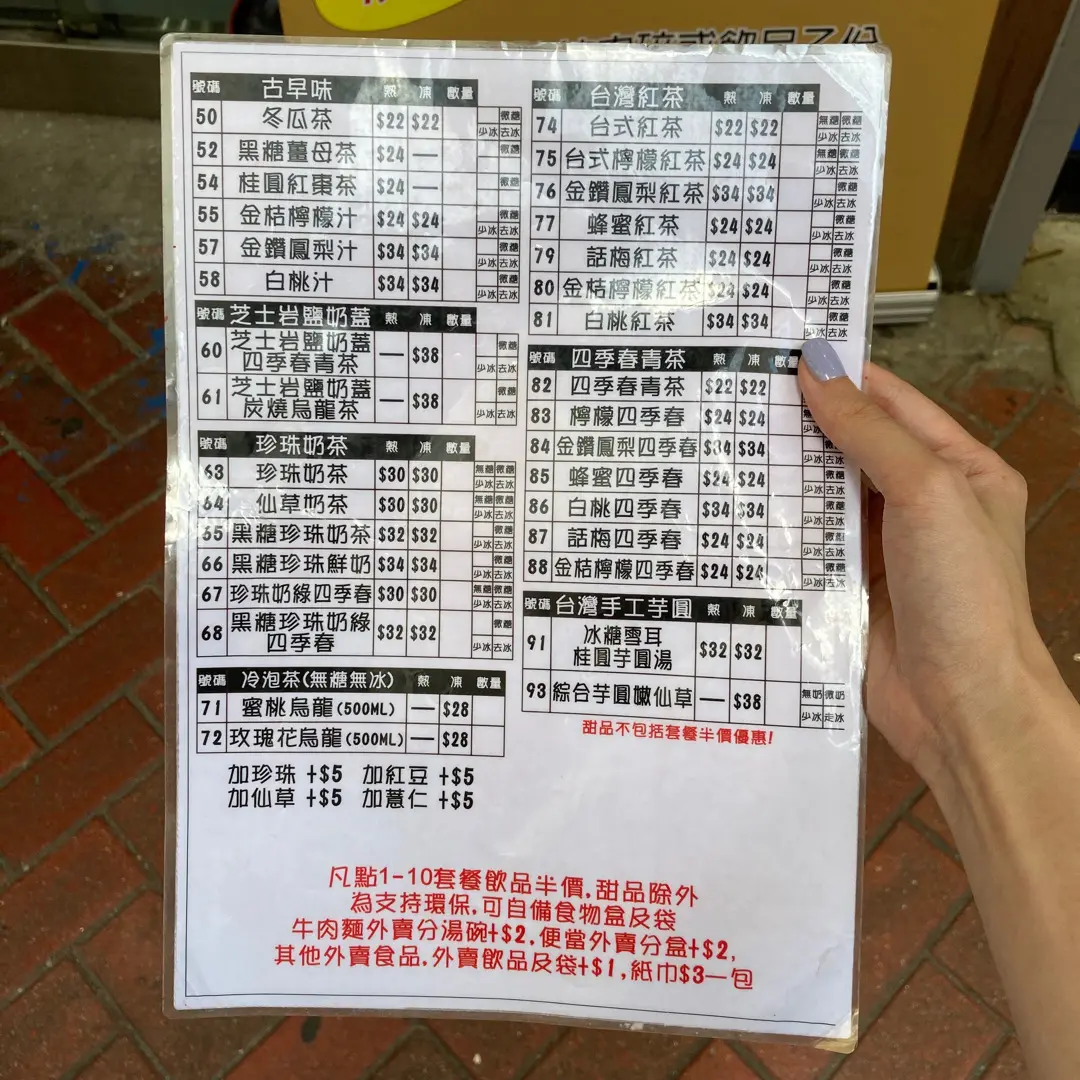 號碼 古早味 熱 凍 數量
50 冬瓜茶 $22 $22 微糖 少冰 去冰
52 黑糖薑母茶 $24 — 微糖
54 桂圓紅棗茶 $24 — 微糖
55 金桔檸檬汁 $24 $24 微糖 少冰 去冰
57 金鑽鳳梨汁 $34 $34 微糖 少冰 去冰
58 白桃汁 $34 $34 微糖 少冰 去冰
號碼 芝士岩鹽奶蓋 熱 凍 數量
60 芝士岩鹽奶蓋
四季春青茶 — $38 微糖 少冰 去冰
61 芝士岩鹽奶蓋
炭燒烏龍茶 — $38 微糖 少冰 去冰
號碼 珍珠奶茶 熱 凍 數量
63 珍珠奶茶 $30 $30 無糖 微糖 少冰 去冰
64 仙草奶茶 $30 $30 無糖 微糖 少冰 去冰
65 黑糖珍珠奶茶 $32 $32 微糖 少冰 去冰
66 黑糖珍珠鮮奶 $34 $34 微糖 少冰 去冰
67 珍珠奶綠四季春 $30 $30 無糖 微糖 少冰 去冰
68 黑糖珍珠奶綠
四季春 $32 $32 微糖 少冰 去冰
號碼 冷泡茶(無糖無冰) 熱 凍 數量
71 蜜桃烏龍(500ML) — $28
72 玫瑰花烏龍(500ML) — $28
加珍珠 +$5 加紅豆 +$5
加仙草 +$5 加薏仁 +$5
號碼 台灣紅茶 熱 凍 數量
74 台式紅茶 $22 $22 無糖 微糖 少冰 去冰
75 台式檸檬紅茶 $24 $24 無糖 微糖 少冰 去冰
76 金鑽鳳梨紅茶 $34 $34 微糖 少冰 去冰
77 蜂蜜紅茶 $24 $24 微糖 少冰 去冰
79 話梅紅茶 $24 $24 微糖 少冰 去冰
80 金桔檸檬紅茶 $24 $24 微糖 少冰 去冰
81 白桃紅茶 $34 $34 微糖 少冰 去冰
號碼 四季春青茶 熱 凍 數量
82 四季春青茶 $22 $22
83 檸檬四季春 $24 $24
84 金鑽鳳梨四季春 $34 $34 少冰 去冰
85 蜂蜜四季春 $24 $24 微糖 少冰 去冰
86 白桃四季春 $34 $34 微糖 少冰 去冰
87 話梅四季春 $24 $24 微糖 少冰 去冰
88 金桔檸檬四季春 $24 $24 微糖 少冰 去冰
號碼 台灣手工芋圓 熱 凍 數量
91 冰糖雪耳
桂圓芋圓湯 $32 $32
93 綜合芋圓嫩仙草 — $38 無奶 微奶 少冰 走冰
甜品不包括套餐半價優惠!
凡點1-10套餐飲品半價.甜品除外
為支持環保,可自備食物盒及袋
牛肉麵外賣分湯碗+$2,便當外賣分盒+$2,
其他外賣食品.外賣飲品及袋+$1,紙巾$3一包